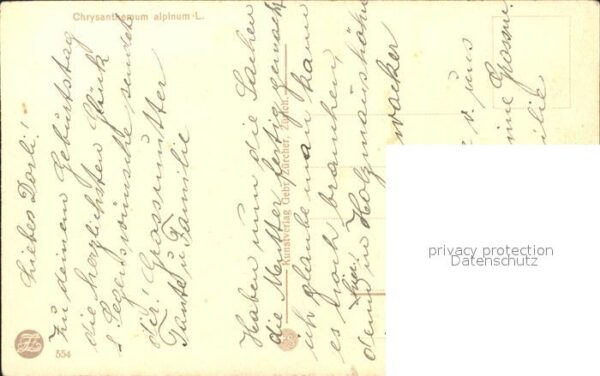 Chrysanthemum alpinum L.
Liebes Dorli!
Zu deinem Geburtstag
die herzlichsten Glück
& Segenswünsche sendet
dir! Grossmutter
Tante u Familie
Haben nun die Sachen
die Mutter fertig gemacht
ich glaube man kann
es noch brauchen,
denn in
wacker
v. uns
Kunstverlag Gebr. Zürcher, Zürich.
554
privacy protection
Datenschutz